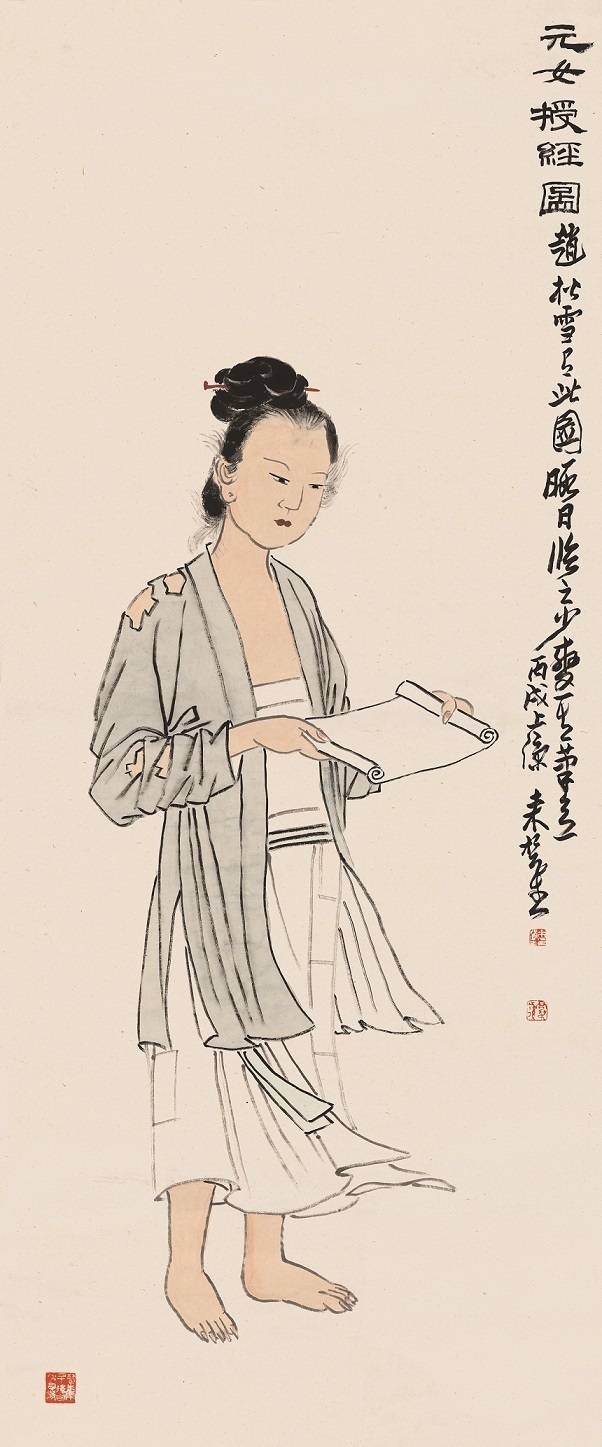 元女授經圖趙松雪有此圖暇日臨之少變其筆意
丙戌上 來楚生